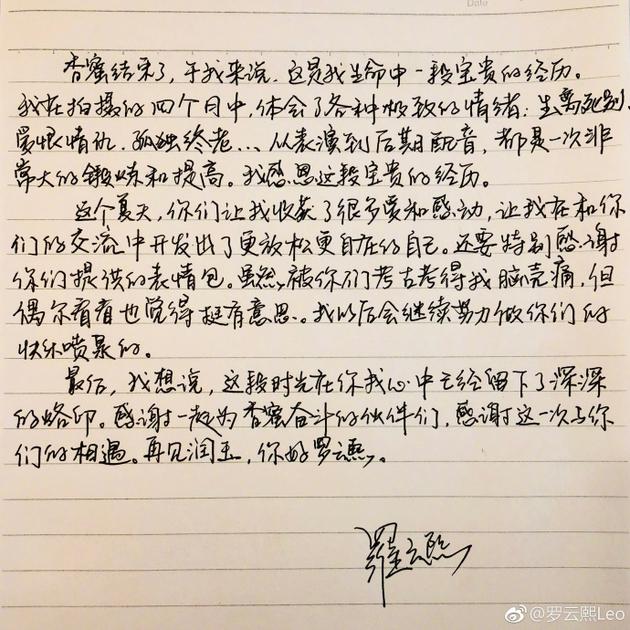 Date
香蜜结束了，于我来说，这是我生命中一段宝贵的经历。
我在拍摄的四个月中，体会了各种极致的情绪：生离死别、
爱恨情仇、孤独终老… 从表演到后期配音，都是一次非
常大的锻炼和提高。我感恩这段宝贵的经历。
这个夏天，你们让我收获了很多爱和感动，让我在和你
们的交流中开发出了更放松更自在的自己。还要特别感谢
你们提供的表情包。虽然被你们考古考得我脑壳痛，但
偶尔看看也觉得挺有意思。我以后会继续努力做你们的
快乐喷泉的。
最后，我想说，这段时光在你我心中已经留下了深深
的烙印。感谢一起为香蜜奋斗的伙伴们，感谢这一次与你
们的相遇。再见润玉，你好罗云熙。
羅云熙
@罗云熙Leo